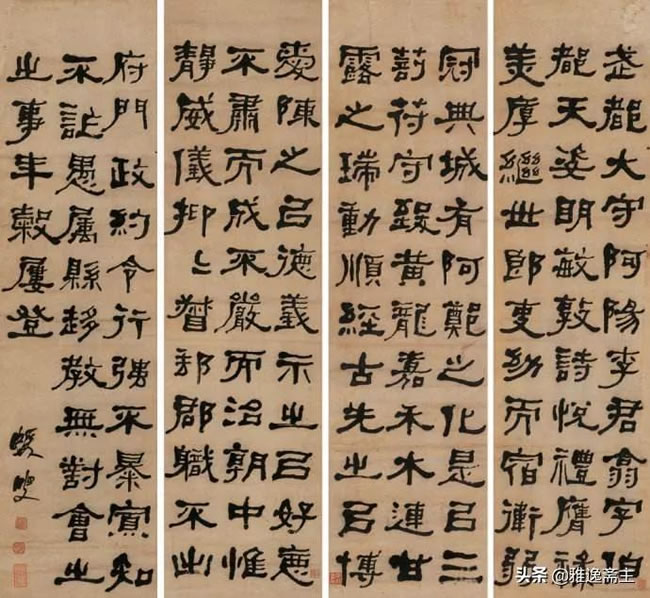 武都大守阿陽李君翕字伯
都天姿明敏敦詩悅禮膺祿
美厚繼世郎吏幼而宿衛弱
冠典城有阿鄭之化是㠯三
剖符守致黃龍嘉禾木連甘
露之瑞動順經古先之㠯博
愛陳之㠯德義示之㠯好惡
不肅而成不嚴而治朝中惟
靜威儀抑〻督郵郡職不出
府門政約令行強不暴寡知
不詐愚属縣趍教無對會之
之事年穀屢登
蝯叟
头条 @雅逸斋主